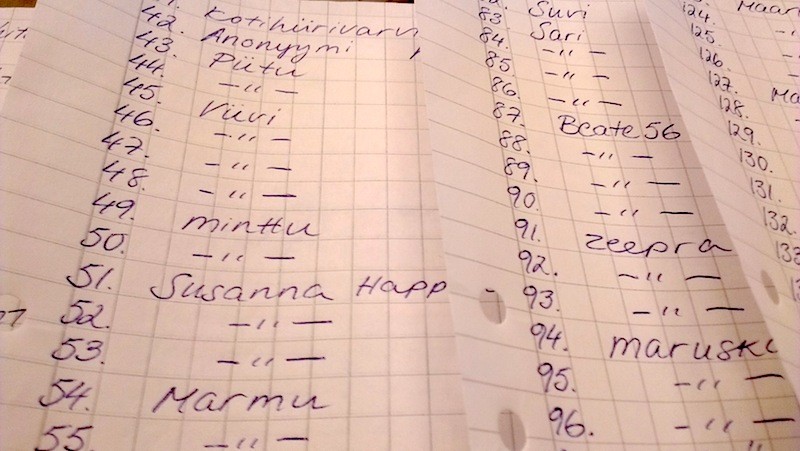 41.
42. Anonyymi
43. Piitu
44. -"-
45. Viivi
46. -"-
47. -"-
48. -"-
49. minttu
50. -"-
51. Susanna Happ
52. -"-
53. -"-
54. Marmu
55. -"-
82. Suvi
83. Sari
84. -"-
85 -"-
86. -"-
87. Beate 56
88. -"-
89. -"-
90. -"-
91. zeepra
92. -"-
93. -"-
94. maruski
95. -"-
96. -"-
124. Maar
125.
126.
127. Ma
128.
129.
130.
131.
132.
133